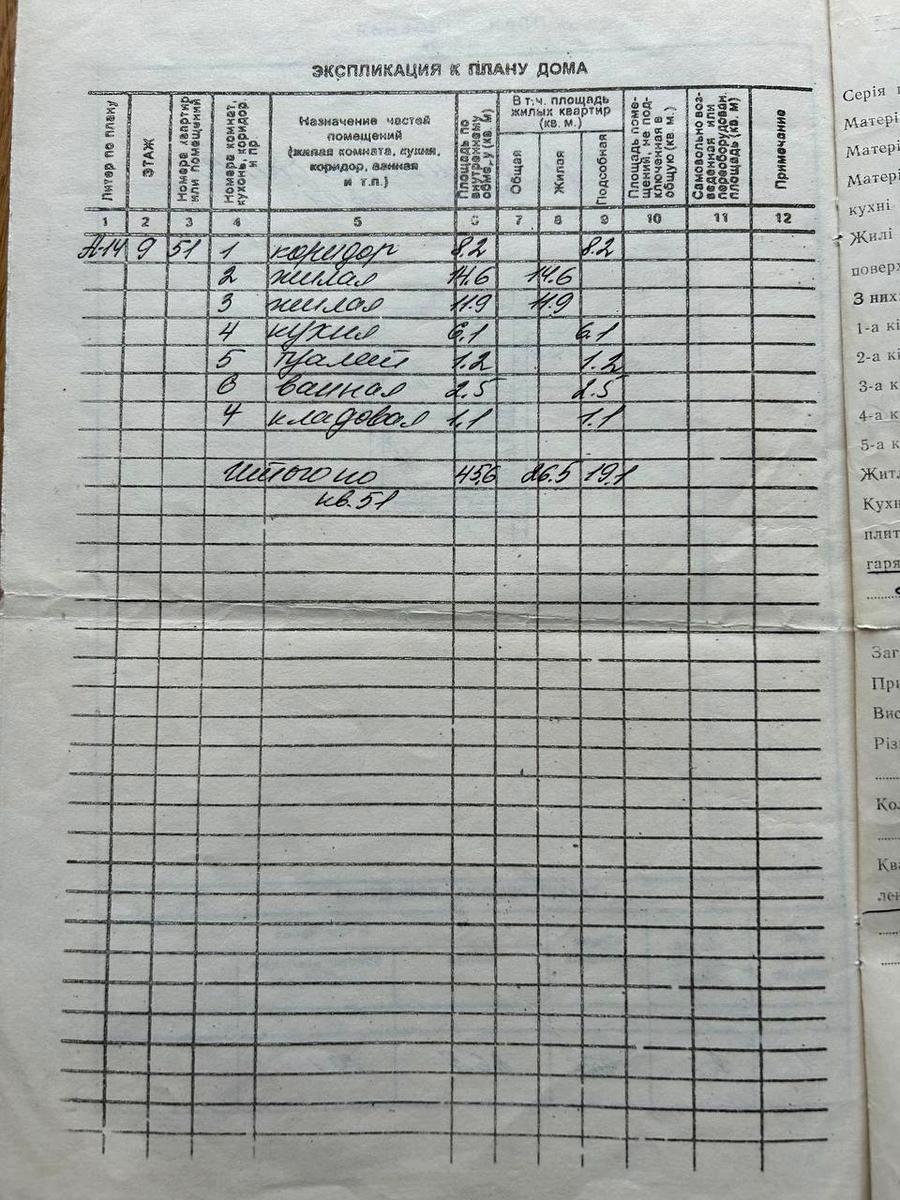 ЭКСПЛИКАЦИЯ К ПЛАНУ ДОМА
Литер по плану
ЭТАЖ
Номера квартир или помещений
Номера комнат, кухонь, коридор. и пр
Назначение частей помещений (жилая комната, кухня, коридор, ванная и т.п.)
Площадь по внутреннему обмеру (кв. м)
В т.ч. площадь жилых квартир (кв. м.)
Общая
Жилая
Подсобная
Площадь помещений, не подключенная в общую (кв. м.)
Самовольно возведенная или переоборудован. площадь (кв. м)
Примечание
1 2 3 4 5 6 7 8 9 10 11 12
А-14 9 51 1 коридор 8.2 8.2
2 жилая 14.6 14.6
3 жилая 11.9 11.9
4 кухня 6.1 6.1
5 туалет 1.2 1.2
6 ванная 2.5 2.5
7 кладовая 1.1 1.1
Итого по 45.6 26.5 19.1
кв. 51
Серія
Матері
Матері
Матері
кухні
Жилі
поверх
З них:
1-а кі
2-а кі
3-а к
4-а к
5-а к
Житл
Кухн
плит
гаря
Заг
При
Вис
Різ
Кол
Ква
лен